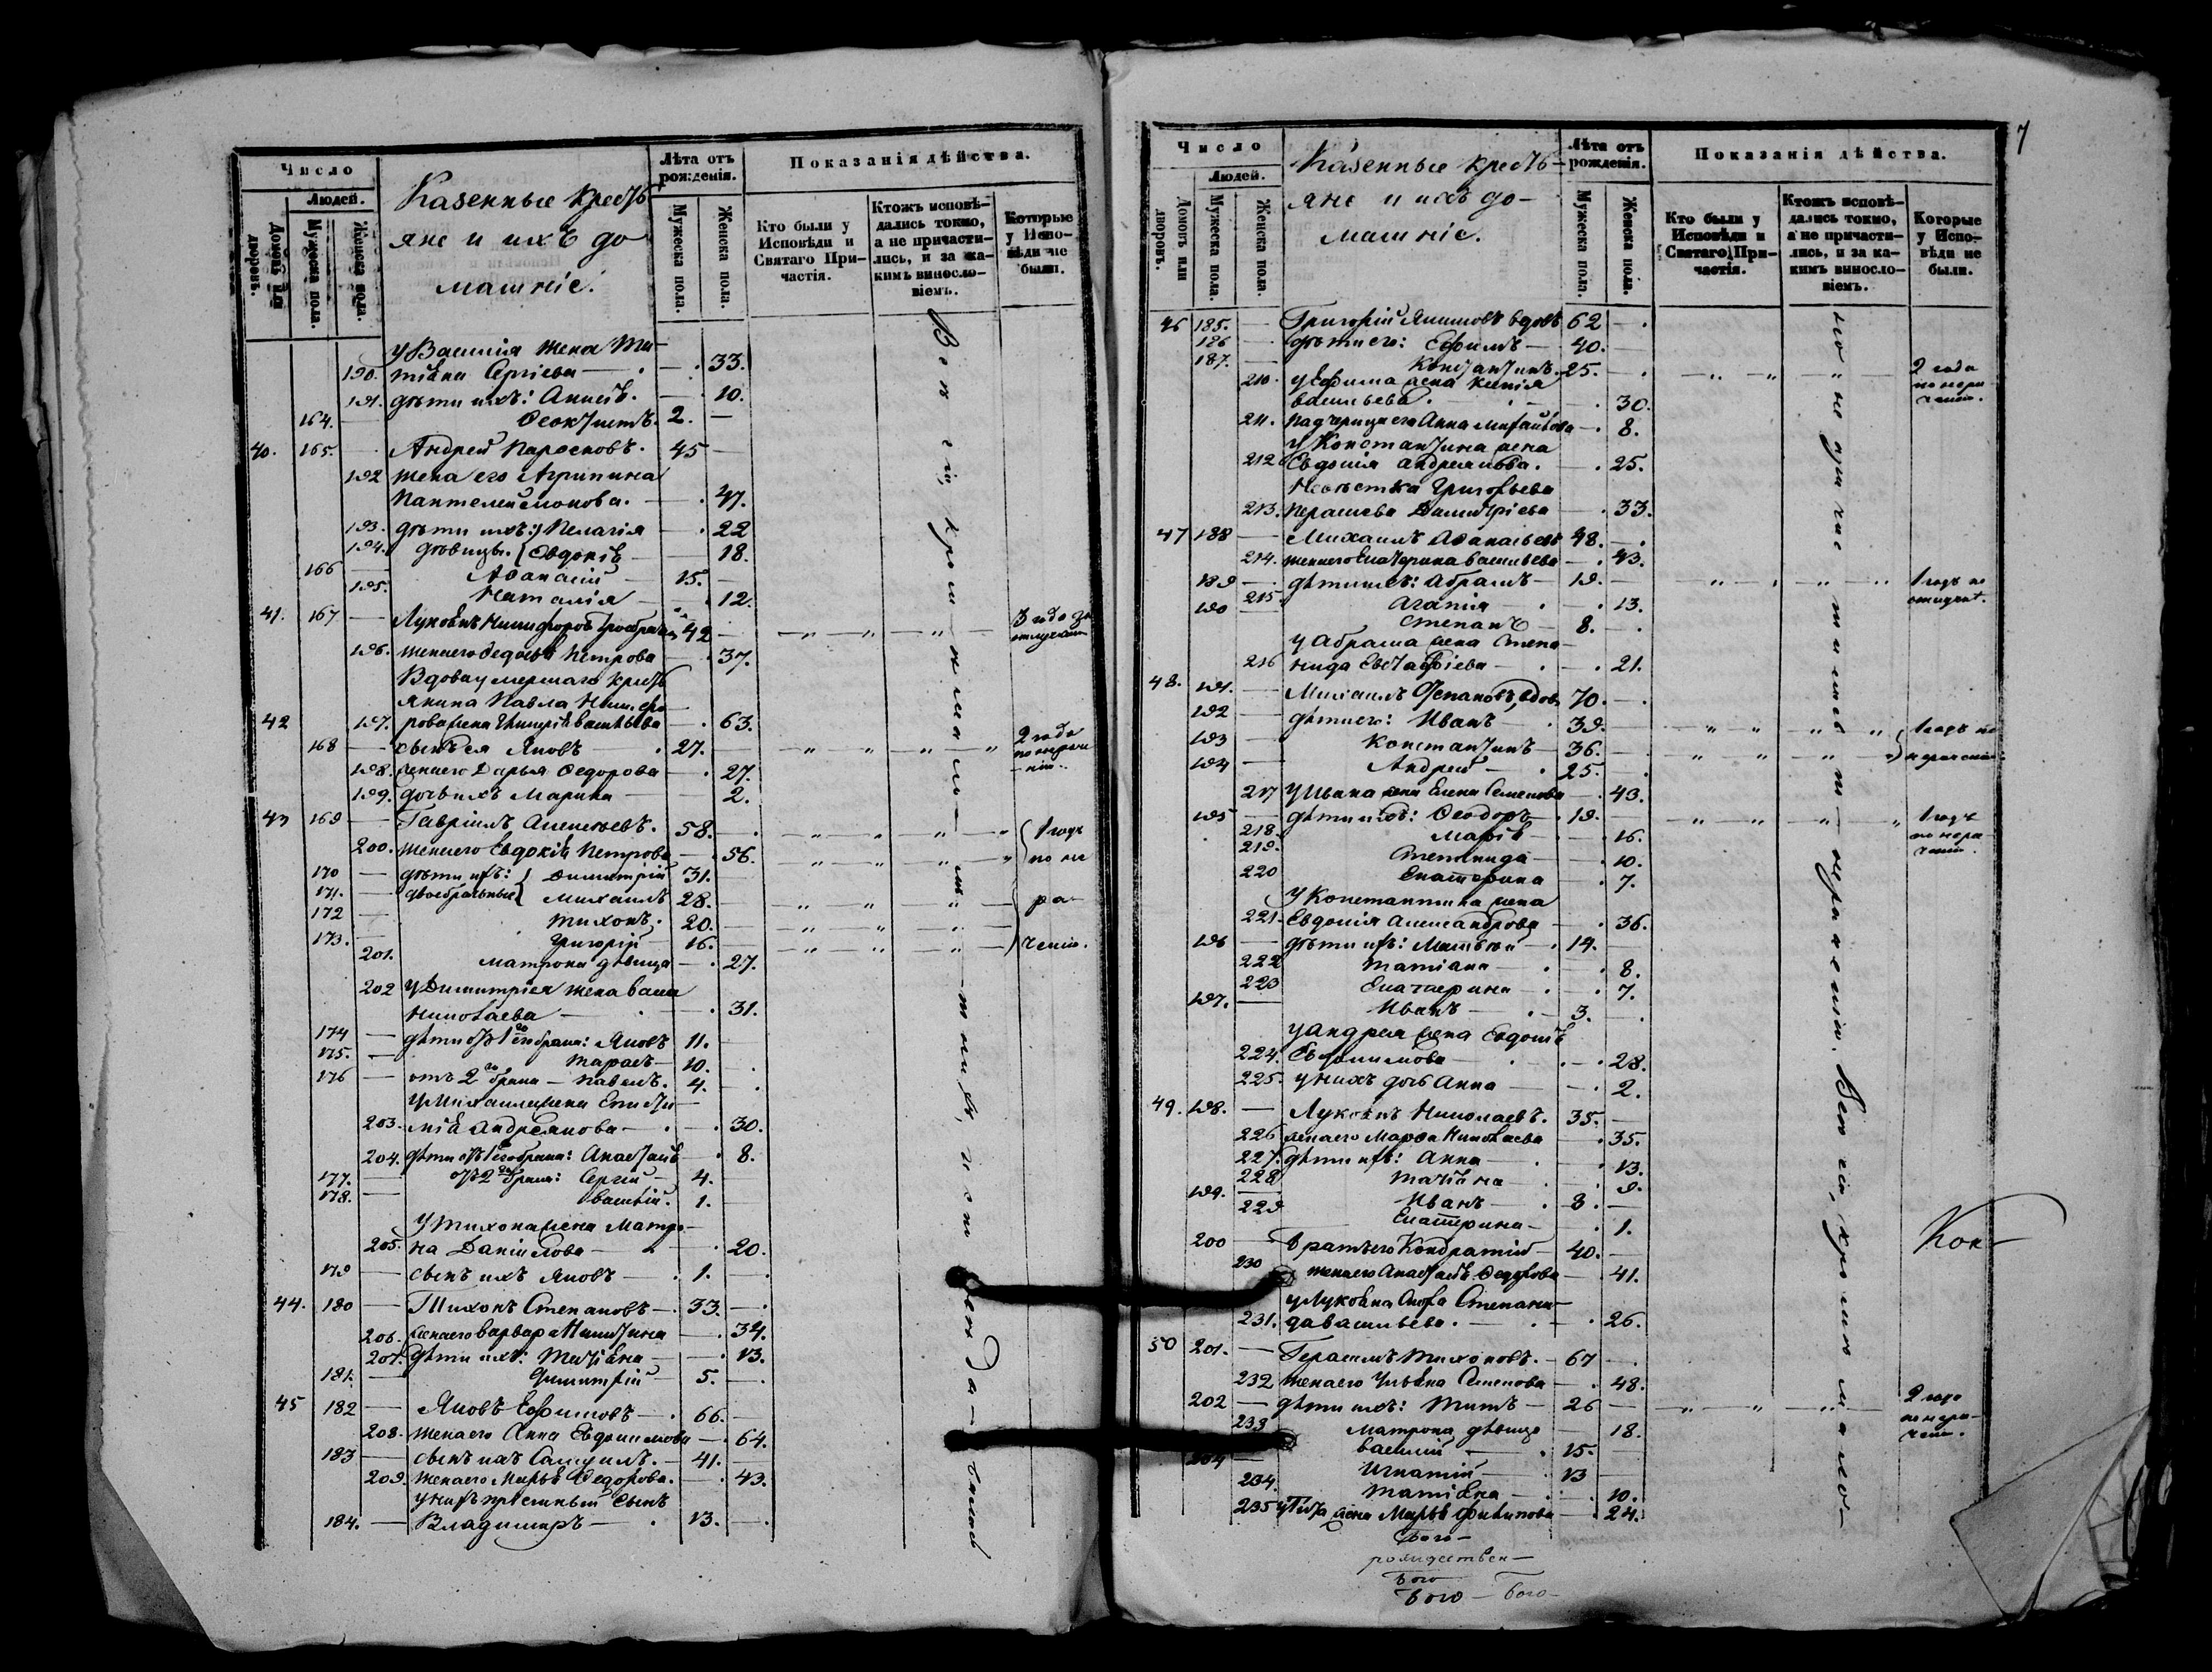 Число
Людей.
Домовъ или дворовъ.
Мужеска пола.
Женска пола.
Казенные кресть
яне и ихъ до
машніе.
Лѣта отъ рожденія.
Мужеска пола.
Женска пола.
Показанія дѣйства.
Кто были у Исповѣди и Святаго Причастія.
Ктожъ исповѣдались токмо, а не причастились, и за какимъ винословіемъ.
Которые у Исповѣди не были.
у Василія жена Та
190. тіана Сергіева — 33.
191. дѣти ихъ: 10.
164. Ѳеоктистъ. 2.
40. 165. Андрей 45
192 жена его Агрипина
Пантелеймонова. 47.
193. дѣти ихъ: Пелагія 22
194. дѣвицы. Евдокія 18.
166 Аѳанасій 15.
195. Наталія 12.
41. 167 Лукіянъ Никифоровъ 42 3 года за
отлучкою
196. жена его Ѳедосья Петрова 37.
Вдова умершаго кресть
янина Павла Никифо
42 197. рова жена Васильева 63.
168 сынъ ея Яковъ 27. 2 года
по нераче
нію.
198. жена его Дарья Ѳедорова 27.
199. дочь ихъ Марина 2.
43 169 Гавріилъ Алексѣевъ. 58. 1 годъ
200. жена его Евдокія Петрова 56. по не
170 дѣти ихъ: Димитрій 31.
171. двоебрачные Михаилъ 28. ра
172 Тихонъ. 20.
173. Григорій 16. ченію.
201. Матрона дѣвица 27.
202 у Димитрія жена Васса
Николаева 31.
174 дѣти отъ 1го брака: Яковъ 11.
175. Тарасъ 10.
176 отъ 2го брака — Павелъ. 4.
у Михаила жена Еписти
203. мія Андреянова 30.
204. дѣти отъ 1го брака: Анастасія 8.
177. отъ 2го брака: Сергій 4.
178. Василій. 1.
у Тихона жена Матро
205. на Даніилова 20.
179 сынъ ихъ Яковъ 1.
44. 180 Тихонъ Степановъ 33.
206. жена его Варвара Никитина 34.
207. дѣти ихъ: Татіана 13.
181. Димитрій 5.
45 182 Яковъ Ефимовъ 66.
208. жена его Анна Евдокимова 64.
183 сынъ ихъ Самуилъ. 41.
209. жена его Марья Ѳедорова. 43.
у нихъ пріемный сынъ
184. Владимиръ 13.
Всѣ сіи, кромѣ
7
Число
Людей.
Домовъ или дворовъ.
Мужеска пола.
Женска пола.
Казенные кресть
яне и ихъ до
машніе.
Лѣта отъ рожденія.
Мужеска пола.
Женска пола.
Показанія дѣйства.
Кто были у Исповѣди и Святаго Причастія.
Ктожъ исповѣдались токмо, а не причастились, и за какимъ винословіемъ.
Которые у Исповѣди не были.
46 185. Григорій Якимовъ вдовъ 62
186 дѣти его: Ефимъ 40.
187. Константинъ. 25. 2 года
по нера
ченію.
210. у Ефима жена Ксенія
Васильева. 30.
211. падчерица его Анна Михайлова 8.
у Константина жена
212 Евдокія Андреянова. 25.
Невѣстка Григорьева
213. Димитріева 33.
47 188 Михаилъ Аѳанасьевъ 48.
214. жена его Екатерина Васильева 43.
189 дѣти ихъ: Абрамъ 19. 1 годъ по
215 Агапія 13.
190 Степанъ 8.
у Абрама жена Степа
216 нида Евстафіева 21.
48. 191. Михаилъ Степановъ, вдовъ 70.
192 дѣти его: Иванъ 39. 1 годъ по
193 Константинъ 36. нераченію.
194 Андрей 25.
217 у Ивана жена Елена Семенова 43.
195 дѣти ихъ: Ѳеодоръ 19. 1 годъ
по нера
ченію.
218. Марія 16.
219. Степанида 10.
220 Екатерина 7.
у Константина жена
221. Евдокія Александрова 36.
196 дѣти ихъ: 14.
222 Татіана 8.
223 Екатерина 7.
197. Иванъ 3.
у Андрея жена Евдокія
224. Евдокимова 28.
225. у нихъ дочь Анна 2.
49. 198. Лукіянъ Николаевъ. 35.
226 жена его Марѳа Николаева 35.
227. дѣти ихъ: Анна 13.
228 Татіана 9.
199. Иванъ 8.
229 Екатерина 1.
200 братъ его Кондратій 40.
230 жена его Анастасія Ѳедорова 41.
у Лукіяна сноха Степани
231. да Васильева. 26.
50 201. Герасимъ Тихоновъ. 67
232 жена его Ульяна Семенова 48.
202 дѣти ихъ: Титъ 26 2 года
по нера
ченію.
233 Матрона дѣвица 18.
Василій 15.
204 Игнатій 13
234. Татіана 10.
235 у Тита жена Марья Филипова 24.
Всѣ сіи, кромѣ
Кон
Бого
рождествен
Бого
Бого — Бого